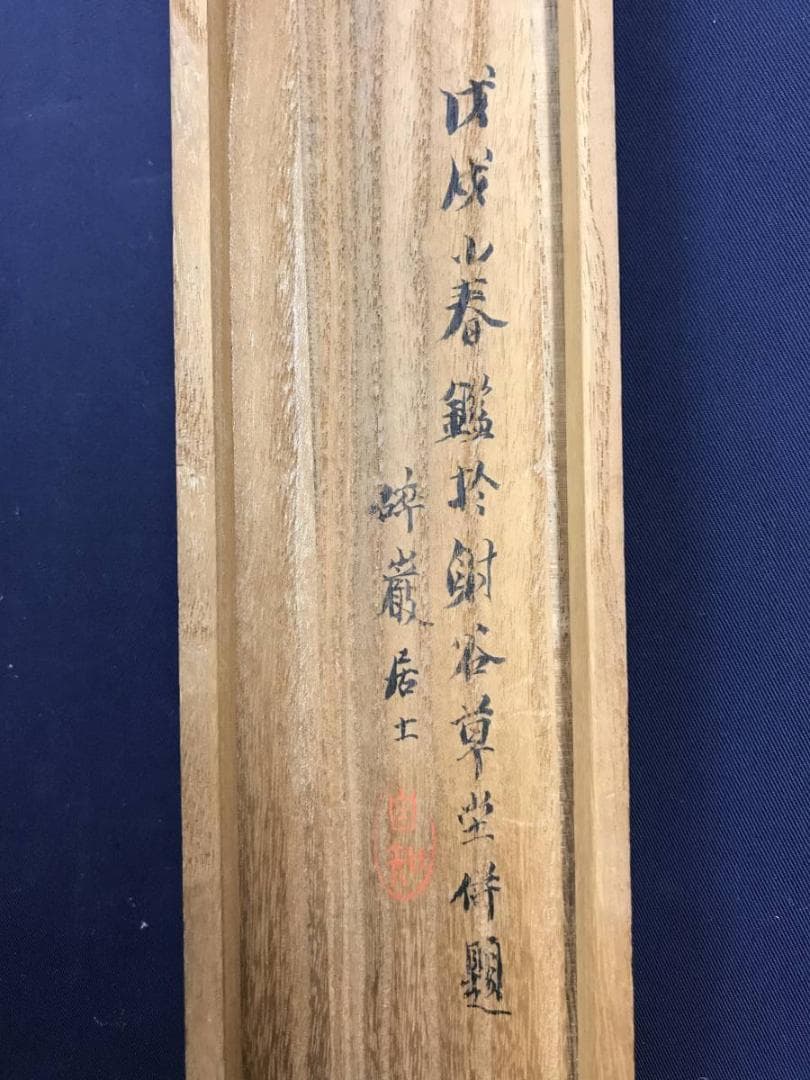 戊戌小春鑑於射谷草堂併題
碎巖居士